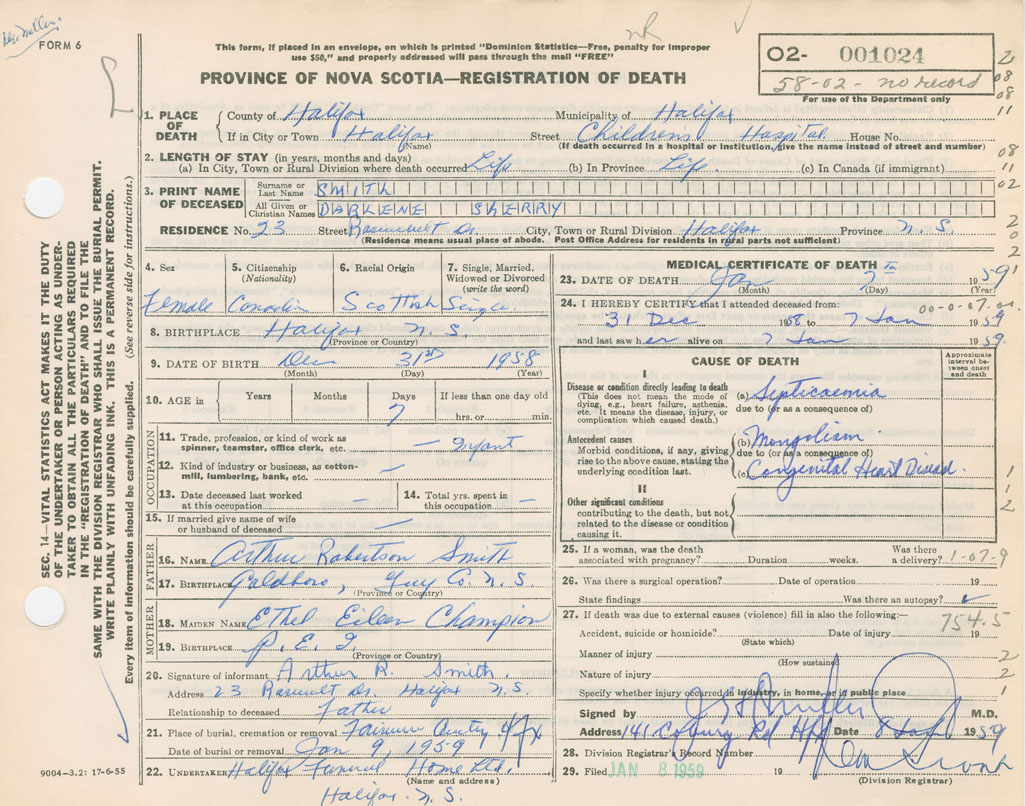 FORM 6
This form, if placed in an envelope, on which is printed "Dominion Statistics—Free, penalty for improper
use $50," and properly addressed will pass through the mail "FREE"
PROVINCE OF NOVA SCOTIA—REGISTRATION OF DEATH
02- 001024
58-02- no record
For use of the Department only
1. PLACE OF DEATH
County of Halifax Municipality of Halifax
If in City or Town Halifax Street Childrens Hospital House No.
(Name) (If death occurred in a hospital or institution, give the name instead of street and number)
2. LENGTH OF STAY (in years, months and days)
(a) In City, Town or Rural Division where death occurred Life (b) In Province Life (c) In Canada (if immigrant)
3. PRINT NAME OF DECEASED
Surname or Last Name SMITH
All Given or Christian Names DARLENE SHERRY
RESIDENCE No. 23 Street Rosevelt Dr. City, Town or Rural Division Halifax Province N.S.
(Residence means usual place of abode. Post Office Address for residents in rural parts not sufficient)
SEC. 14—VITAL STATISTICS ACT MAKES IT THE DUTY
OF THE UNDERTAKER OR PERSON ACTING AS UNDER-
TAKER TO OBTAIN ALL THE PARTICULARS REQUIRED
IN THE "REGISTRATION OF DEATH" AND TO FILE THE
SAME WITH THE DIVISION REGISTRAR WHO SHALL ISSUE THE BURIAL PERMIT.
WRITE PLAINLY WITH UNFADING INK. THIS IS A PERMANENT RECORD.
Every item of information should be carefully supplied. (See reverse side for instructions.)
4. Sex 5. Citizenship (Nationality) 6. Racial Origin 7. Single, Married, Widowed or Divorced (write the word)
Female Canadian Scottish Single
8. BIRTHPLACE Halifax N.S.
(Province or Country)
9. DATE OF BIRTH Dec 31st 1958
(Month) (Day) (Year)
10. AGE in Years Months Days If less than one day old
7 hrs. or min.
OCCUPATION
11. Trade, profession, or kind of work as spinner, teamster, office clerk, etc. — Infant
12. Kind of industry or business, as cotton-mill, lumbering, bank, etc. —
13. Date deceased last worked at this occupation —
14. Total yrs. spent in this occupation —
15. If married give name of wife or husband of deceased —
FATHER
16. NAME Arthur Robertson Smith
17. BIRTHPLACE Goldboro, Guy Co. N.S.
(Province or Country)
MOTHER
18. MAIDEN NAME Ethel Eileen Champion
19. BIRTHPLACE P.E.I.
(Province or Country)
20. Signature of informant Arthur R. Smith.
Address 23 Rosevelt Dr. Halifax N.S.
Relationship to deceased Father
21. Place of burial, cremation or removal
Date of burial or removal Jan 9, 1959
22. UNDERTAKER Halifax Funeral Home Ltd.
(Name and address)
Halifax. N.S.
9004-3.2: 17-6-55
MEDICAL CERTIFICATE OF DEATH
23. DATE OF DEATH Jan 7th 1959
(Month) (Day) (Year)
24. I HEREBY CERTIFY that I attended deceased from:
31 Dec 1958 to 7 Jan 1959
and last saw her alive on 7 Jan 1959.
CAUSE OF DEATH
Approximate interval between onset and death
I
Disease or condition directly leading to death
(This does not mean the mode of dying, e.g., heart failure, asthenia, etc. It means the disease, injury, or complication which caused death.)
(a) Septicaemia
due to (or as a consequence of)
Antecedent causes
Morbid conditions, if any, giving rise to the above cause, stating the underlying condition last.
(b) Mongolism
due to (or as a consequence of)
(c) Congenital Heart Disease.
II
Other significant conditions
contributing to the death, but not related to the disease or condition causing it.
25. If a woman, was the death associated with pregnancy? Duration weeks. Was there a delivery?
1-07-9
26. Was there a surgical operation? Date of operation 19
State findings Was there an autopsy?
27. If death was due to external causes (violence) fill in also the following:—
754.5
Accident, suicide or homicide? Date of injury 19
(State which)
Manner of injury
(How sustained)
Nature of injury
Specify whether injury occurred in industry, in home, or in public place
Signed by M.D.
Address 141 Coburg Rd Hfx Date 8 Jan 1959
28. Division Registrar's Record Number
29. Filed JAN 8 1959 19
(Division Registrar)